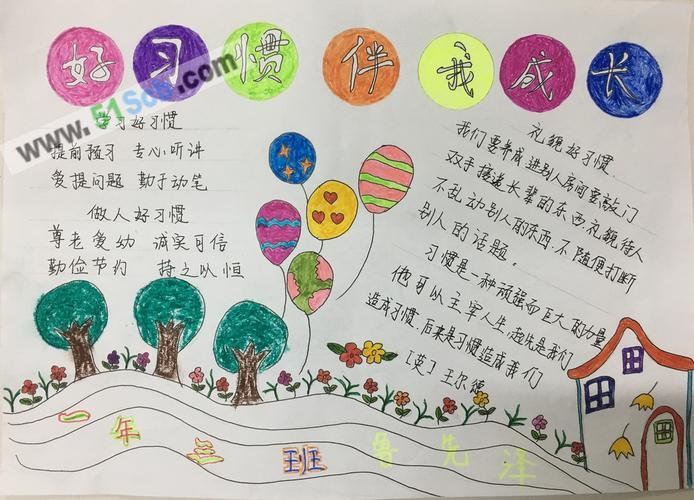 好习惯伴我成长
www.51Sc
.com
学习好习惯
提前预习 专心听讲
爱提问题 勤于动笔
做人好习惯
尊老爱幼 诚实可信
勤俭节约 持之以恒
礼貌好习惯
我们要养成进别人房间要敲门
双手接递长辈的东西.礼貌待人
不乱动别人的东西.不随便打断
别人的话题。
习惯是一种顽强而巨大的力量
他可以主宰人生,起先是我们
造成习惯,后来是习惯造成我们
[英]王尔德
一年三班 鲁先泽